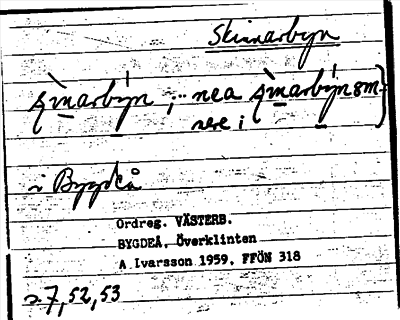 Skinnarbyn
ʂìnarby̍n ; -- nea ʂìnarby̍nsm-
nere i
i Bygdeå
Ordreg. VÄSTERB.
BYGDEÅ, Överklinten
A Ivarsson 1959, FFÖN 318
s. 7, 52, 53